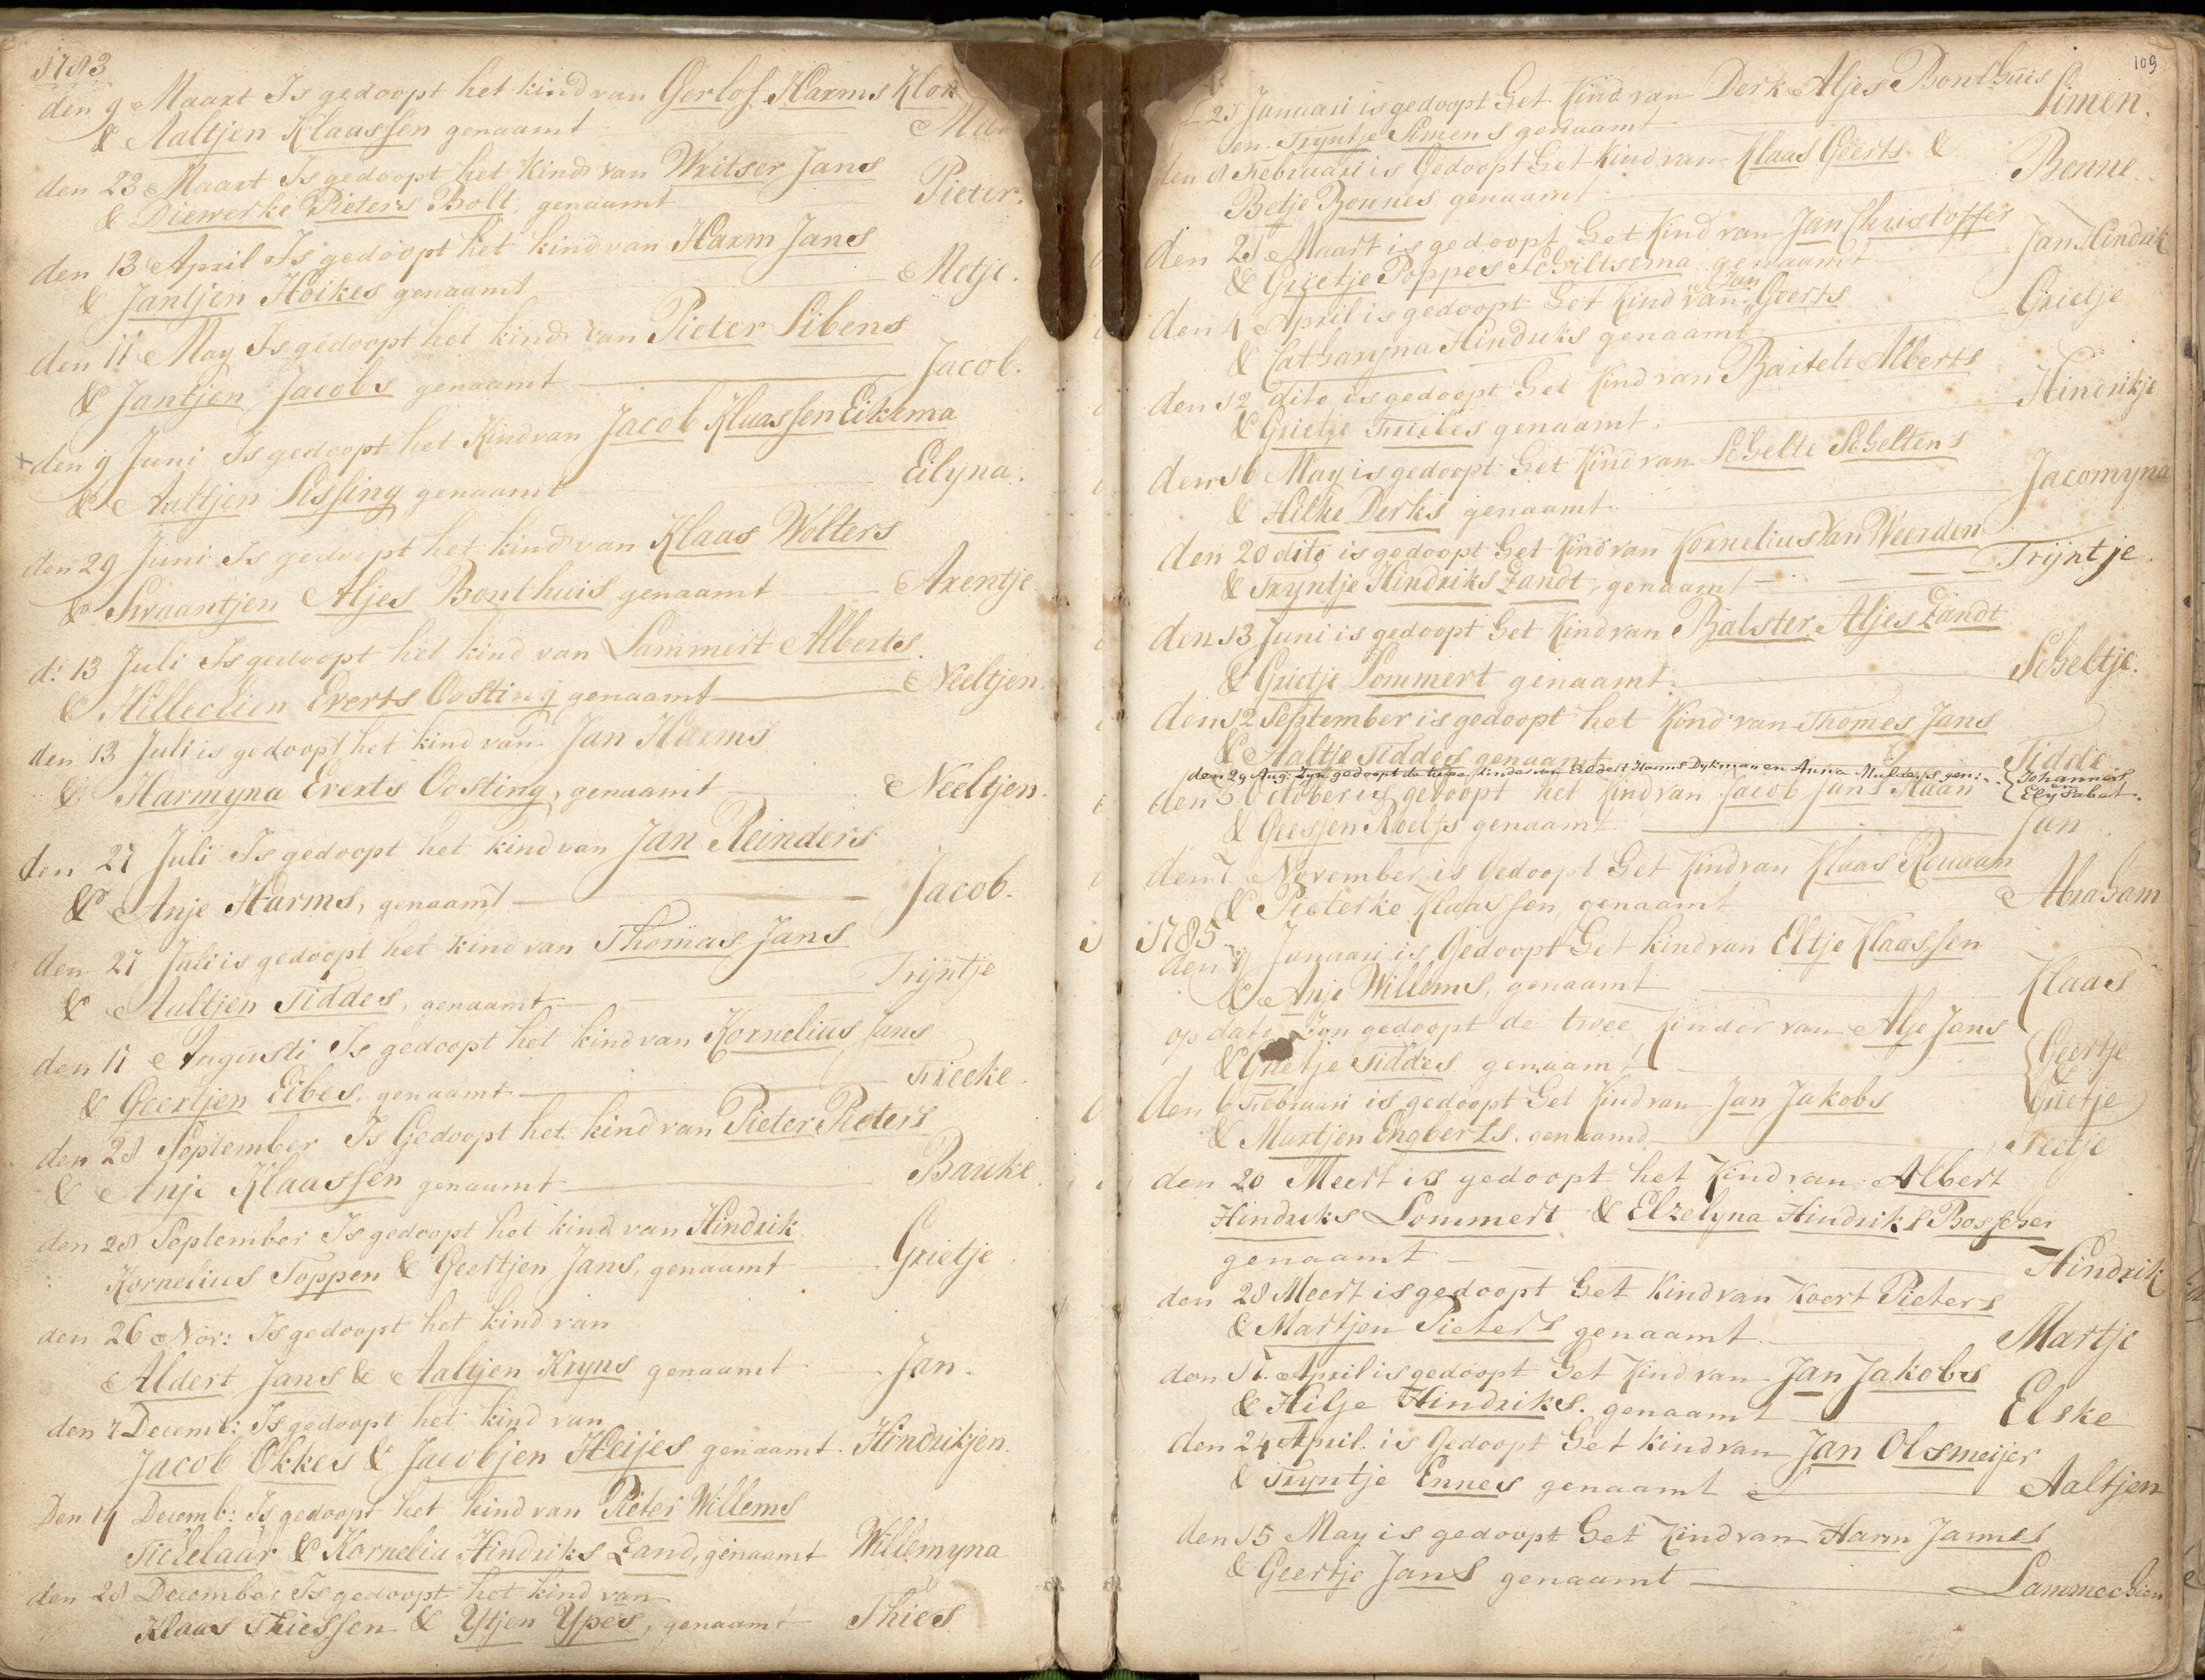 1783
den 9 Maart Is gedoopt het kind van Gerlof Harms Klok
& Aaltjen Klaassen genaamt
den 23 Maart Is gedoopt het kind van Writser Jans
& Diewerke Pieters Bolt genaamt Pieter.
den 13 April Is gedoopt het kind van Harm Jans
& Jantjen Hoikes genaamt Metje.
den 11 May Is gedoopt het kind van Pieter Sibens
& Jantjen Jacobs genaamt Jacob.
den 9 Juni Is gedoopt het Kind van Jacob Klaassen Eikema
& Aaltjen Sissing genaamt Eilyna.
den 29 Juni Is gedoopt het kind van Klaas Wolters
& Swaantjen Aljes Bonthuis genaamt Arentje
d: 13 Juli Is gedoopt het kind van Lammert Alberts
& Hillechien Everts Oosting genaamt Neeltjen.
den 13 Juli is gedoopt het kind van Jan Harms
& Harmyna Everts Oosting, genaamt Neeltjen.
den 27 Juli Is gedoopt het kind van Jan Reinders
& Anje Harms, genaamt Jacob.
den 27 Juli is gedoopt het kind van Thomas Jans
& Aaltjen Tiddes, genaamt Trijntje
den 17 Augusti Is gedoopt het kind van Kornelius Jans
& Geertjen Eibes, genaamt Freeke.
den 28 September Is Gedoopt het kind van Pieter Pieters
& Anje Klaassen genaamt Bauke.
den 28 September Is gedoopt het kind van Hindrik
Kornelius Toppen & Geertjen Jans, genaamt Grietje
den 26 Nov: Is gedoopt het kind van
Aldert Jans & Aaltjen Kryns genaamt Jan.
den 7 Decemb: Is gedoopt het kind van
Jacob Okkes & Jacobjen Heijes genaamt Hindrikjen.
Den 14 Decemb: Is gedoopt het kind van Pieter Willems
Tichelaar & Kornelia Hindriks Zand, genaamt Willemyna
den 28 December Is gedoopt het kind van
Klaas Thiessen & Ytjen Ypes, genaamt Thies
109
25 Januari is gedoopt het Kind van Derk Aljes Bonthuis
en Tryntje Simens genaamt Simen.
den 8 Februari is Gedoopt het Kind van Klaas Geerts &
Betje Bonnes genaamt Bonne.
den 21 Maart is gedoopt het Kind van Jan Christoffer
& Grietje Poppes Schiltsema genaamt Jan Hindrik
den 4 April is gedoopt het Kind van Jan Geerts
& Catharyna Hindriks genaamt Grietje
den 12 dito is gedoopt het Kind van Bartelt Alberts
& Grietje genaamt. Hindrikje
den 16 May is gedoopt het Kind van Schelte Scheltens
& Hilke Derks genaamt Jacomyna
den 20 dito is gedoopt het Kind van Kornelius van Weerden
& Tryntje Hindriks Zandt, genaamt Trijntje.
den 13 Juni is gedoopt het Kind van Balster Aljes Zandt
& Grietje Lommert genaamt Scheltje.
den 12 September is gedoopt het Kind van Thomes Jans
& Aaltje Tiddes genaamt Tidde
den 29 Aug: Zyn gedoopt de twee kinderen Eldert Harms Dykman en Anna Mulders gen: Johannes en Elysabet.
den 3 October is gedoopt het Kind van Jacob Jans Haan
& Geessjen Roelfs genaamt Jan
den 7 November is Gedoopt het Kind van Klaas Rouaan
& Pieterke Klaassen, genaamt Abraham
1785
den 9 Januari is Gedoopt het kind van Eltje Klaassen
& Anje Willems, genaamt Klaas
op dato Zyn gedoopt de twee Kinder van Alje Jans
& Grietje Tiddes genaamt Geertje & Grietje
den 6 Februari is gedoopt het Kind van Jan Jakobs
& Martjen Engberts, genaamd Tietje
den 20 Meert is gedoopt het Kind van Albert
Hindriks Lommert & Elzelyna Hindriks Bosscher
genaamt Hindrik
den 28 Meert is gedoopt het Kind van Koert Pieters
& Martjen Pieters genaamt Martje
den 17. April is gedoopt het Kind van Jan Jakobs
& Hilje Hindriks. genaamt Elske
den 24 April. is Gedoopt het kind van Jan Olsmeijer
& Tryntje Ennes genaamt Aaltjen
den 15 May is gedoopt het Kind van Harm Jannes
& Geertje Jans genaamt Lammechien